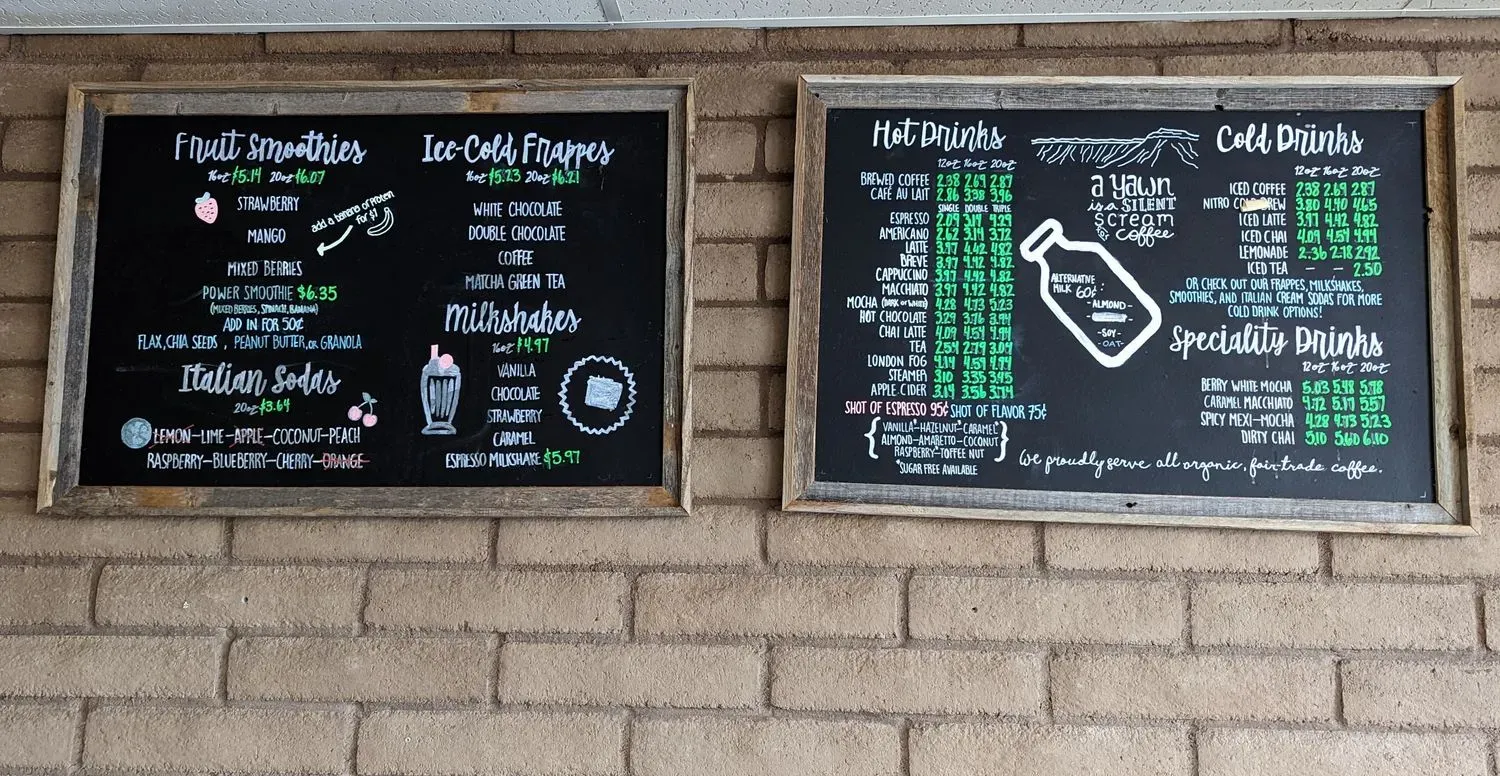 Fruit Smoothies
16oz $5.14 20oz $6.07
STRAWBERRY
add a banana or Protein for $1
MANGO
MIXED BERRIES
POWER SMOOTHIE $6.35
(MIXED BERRIES, SPINACH, BANANA)
ADD IN FOR 50¢
FLAX, CHIA SEEDS , PEANUT BUTTER, OR GRANOLA
Italian Sodas
20oz $3.64
LEMON-LIME-APPLE-COCONUT-PEACH
RASPBERRY-BLUEBERRY-CHERRY-ORANGE
Ice-Cold Frappes
16oz $5.23 20oz $6.21
WHITE CHOCOLATE
DOUBLE CHOCOLATE
COFFEE
MATCHA GREEN TEA
Milkshakes
16oz $4.97
VANILLA
CHOCOLATE
STRAWBERRY
CARAMEL
ESPRESSO MILKSHAKE $5.97
Hot Drinks
12oz 16oz 20oz
BREWED COFFEE 2.38 2.69 2.87
CAFE AU LAIT 2.86 3.38 3.96
SINGLE DOUBLE TRIPLE
ESPRESSO 2.09 3.19 4.29
AMERICANO 2.62 3.14 3.72
LATTE 3.97 4.42 4.82
BREVE 3.97 4.42 4.82
CAPPUCCINO 3.97 4.42 4.82
MACCHIATO 3.97 4.42 4.82
MOCHA (DARK OR WHITE) 4.28 4.73 5.23
HOT CHOCOLATE 3.29 3.76 3.94
CHAI LATTE 4.09 4.59 4.94
TEA 2.54 2.79 3.04
LONDON FOG 4.14 4.59 4.94
STEAMER 3.10 3.35 3.45
APPLE CIDER 3.19 3.56 3.74
SHOT OF ESPRESSO 95¢ SHOT OF FLAVOR 75¢
VANILLA-HAZELNUT-CARAMEL
ALMOND-AMARETTO-COCONUT
RASPBERRY-TOFFEE NUT
*SUGAR FREE AVAILABLE
a yawn
is a SILENT
scream
for
coffee
ALTERNATIVE
MILK 60¢
-ALMOND-
-SOY-
-OAT-
Cold Drinks
12oz 16oz 20oz
ICED COFFEE 2.38 2.69 2.87
NITRO COLD BREW 3.80 4.40 4.65
ICED LATTE 3.97 4.42 4.82
ICED CHAI 4.09 4.59 4.94
LEMONADE 2.36 2.78 2.92
ICED TEA - - 2.50
OR CHECK OUT OUR FRAPPES, MILKSHAKES,
SMOOTHIES, AND ITALIAN CREAM SODAS FOR MORE
COLD DRINK OPTIONS!
Speciality Drinks
12oz 16oz 20oz
BERRY WHITE MOCHA 5.03 5.48 5.78
CARAMEL MACCHIATO 4.72 5.17 5.57
SPICY MEXI-MOCHA 4.28 4.73 5.23
DIRTY CHAI 5.10 5.60 6.10
We proudly serve all organic, fair-trade coffee.